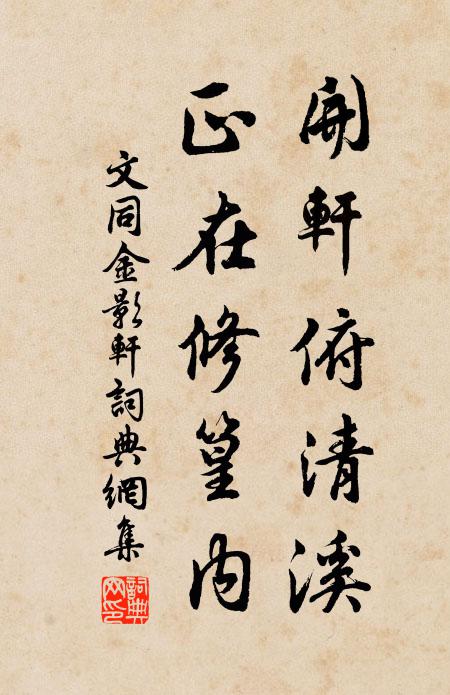 開軒俯清溪
正在修篁内
文同金影軒詞典網集
詞典網印